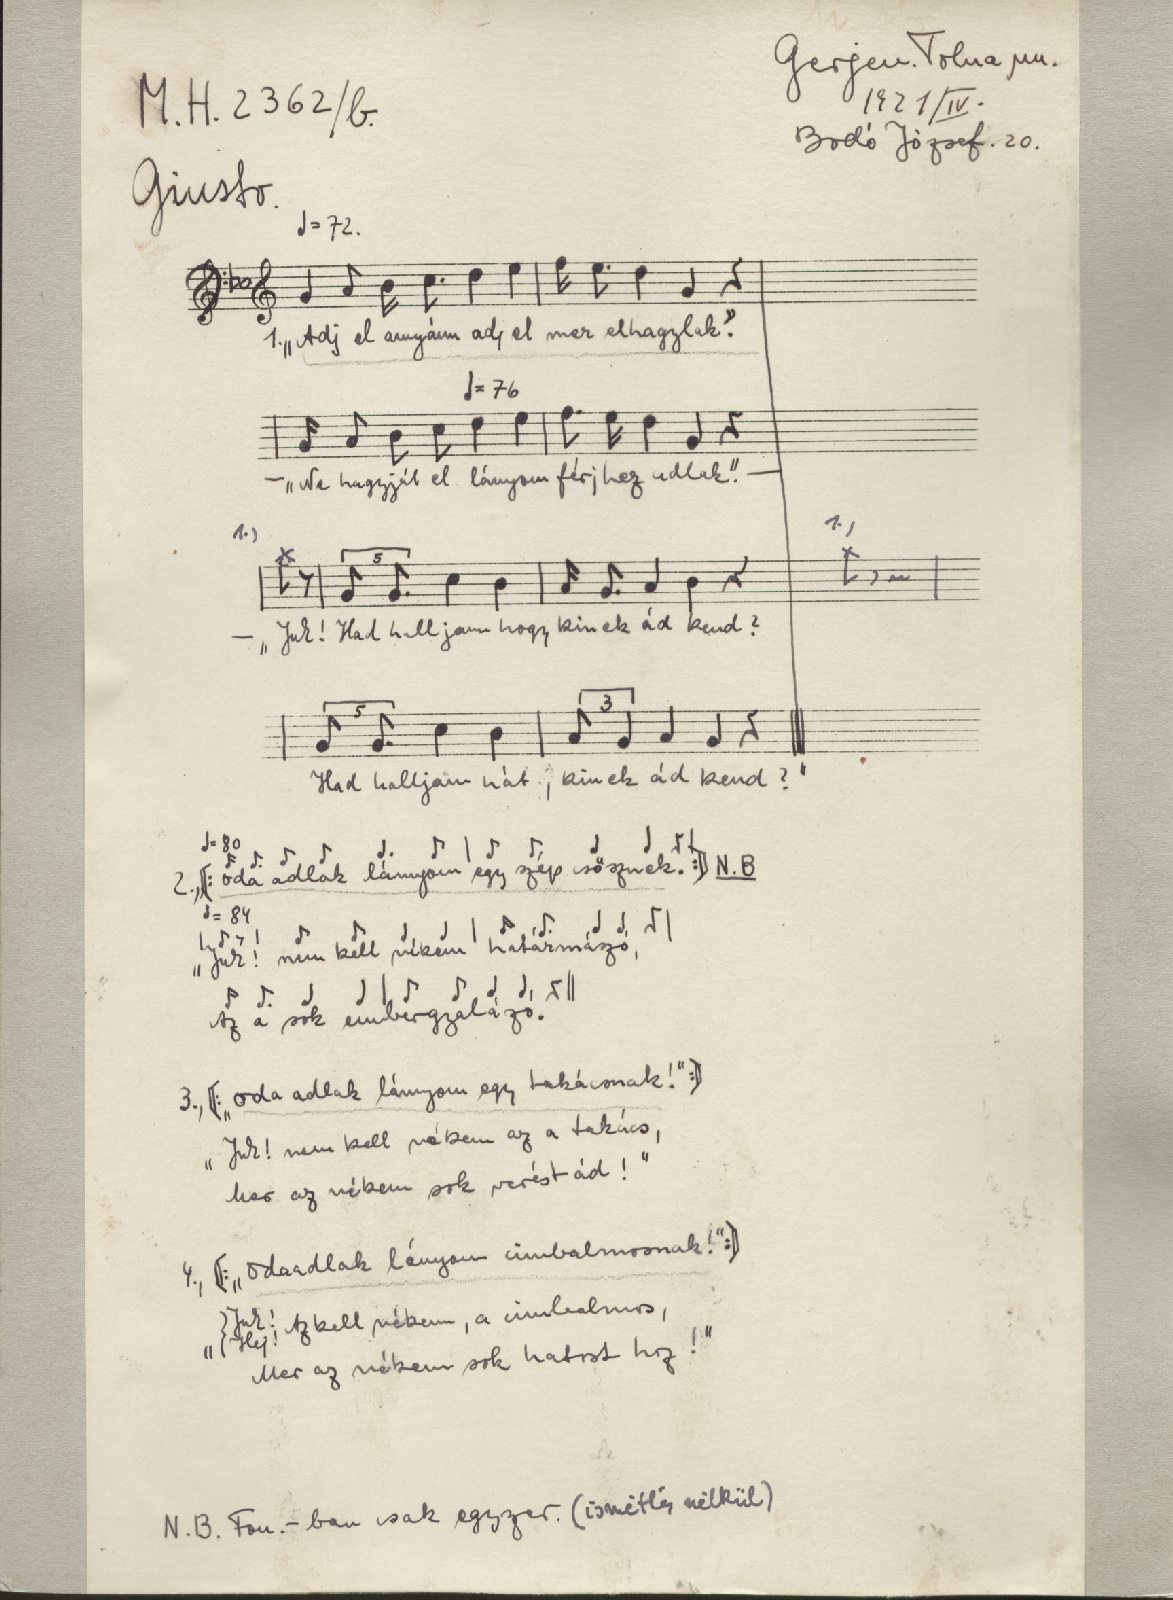 M.H. 2362/b.
Gerjen. Tolna m.
1921/IV.
Bodó József. 20.
Giusto.
♩= 72.
1. „Adj el anyám adj el mer elhagylak."
♩= 76
— „Ne hagyját el lányom férjhez adlak." —
1.,
1.,
5
— „Juh! Had halljam hogy kinek ád kend?
5
3
Had halljam hát, kinek ád kend?"
♩= 80
2., „(: oda adlak lányom egy szép csősznek. :) N.B
♩= 84
„Juh! nem kell nékem határmászó,
Az a sok embergyalázó.
3., (: „oda adlak lányom egy takácsnak!" :)
„Juh! nem kell nékem az a takács,
Mer az nékem sok verést ád!"
4., (: „Odaadlak lányom cimbalmosnak!" :)
„{Juh! Hej!} Az kell nékem, a cimbalmos,
Mer az nékem sok hatost hoz!"
N.B. Fon.-ban csak egyszer. (ismétlés nélkül)